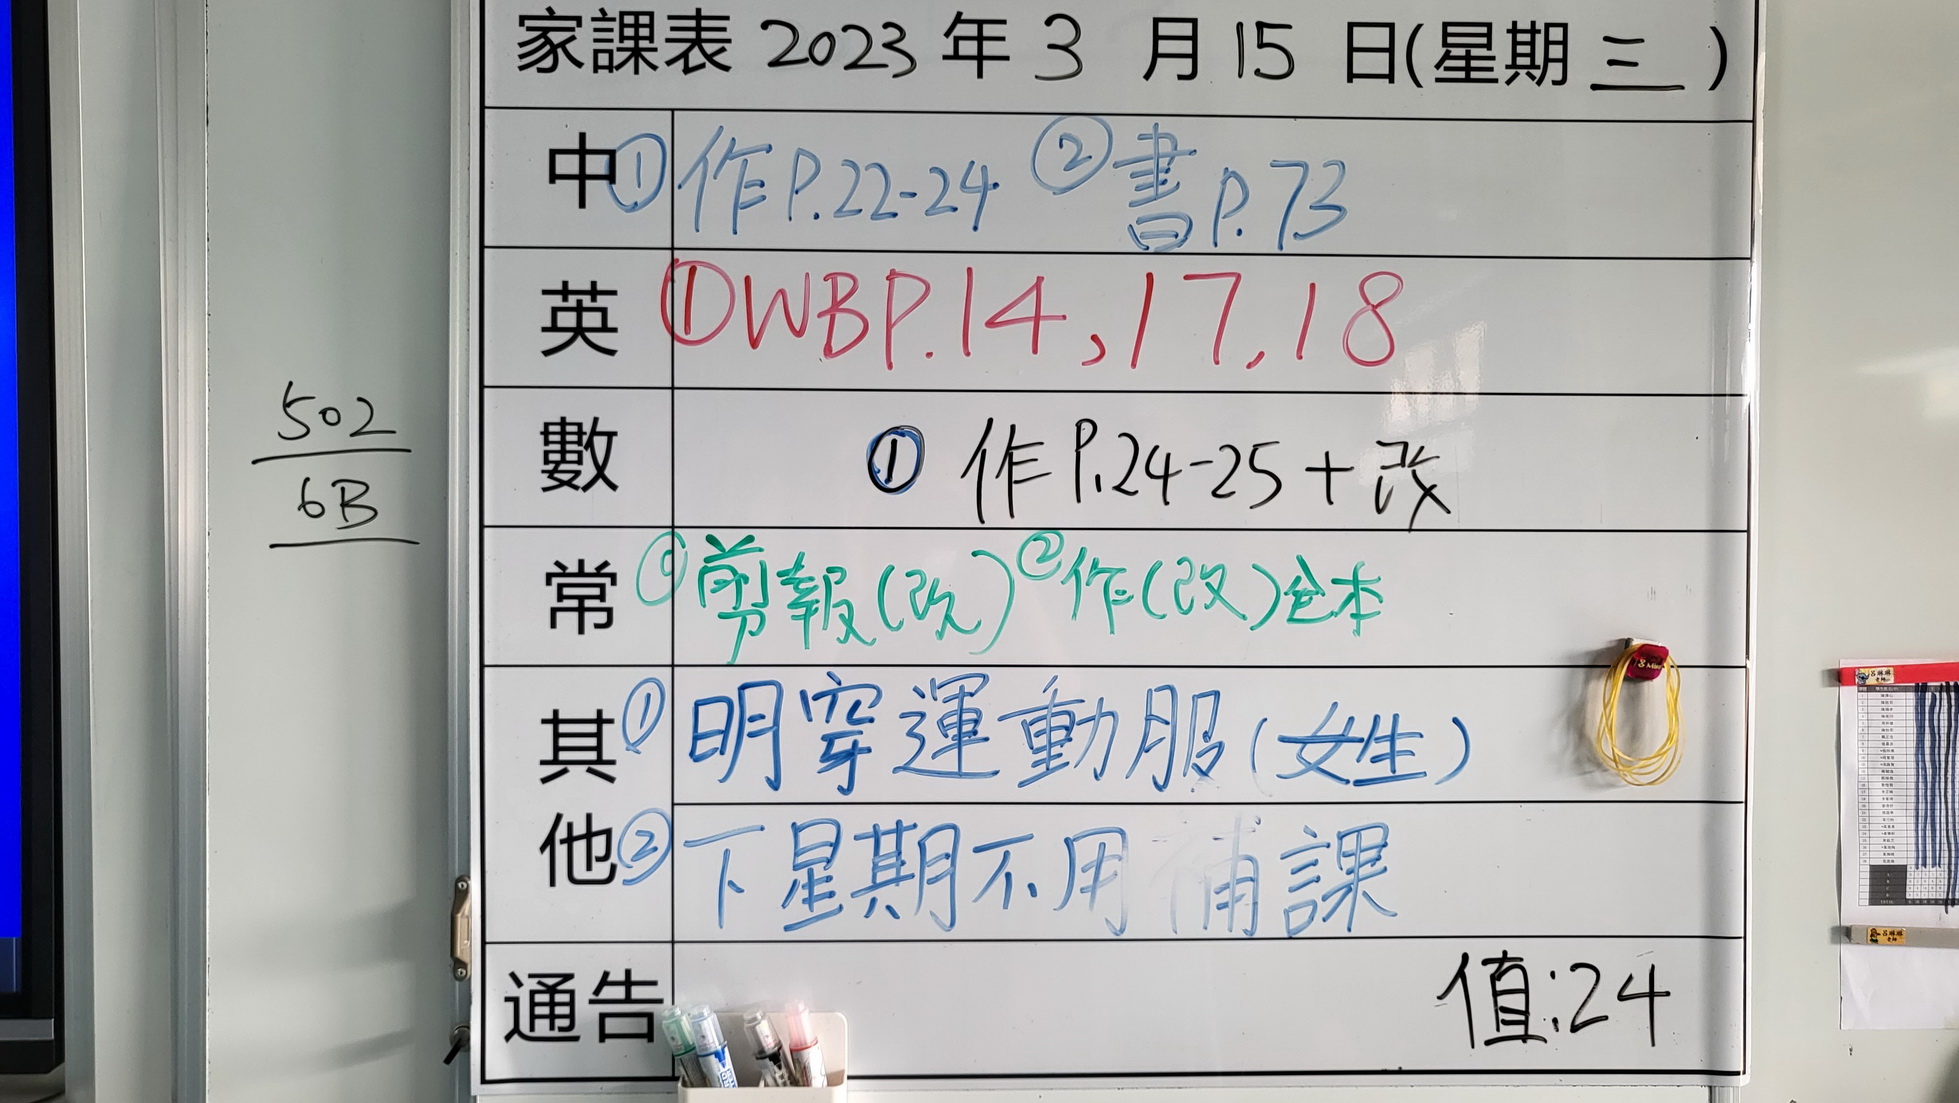 家課表 2023 年 3 月 15 日(星期 三 )
中 ① 作P.22-24 ② 書P.73
英 ① WBP.14,17,18
數 ① 作P.24-25+改
常 ① 剪報(改) ② 作(改)全本
其他 ① 明穿運動服(女生)
② 下星期不用補課
通告 值:24
502
6B